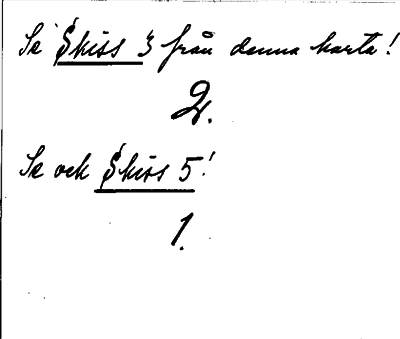 Se Skiss 3 från denna karta!
2.
Se och Skiss 5!
1.